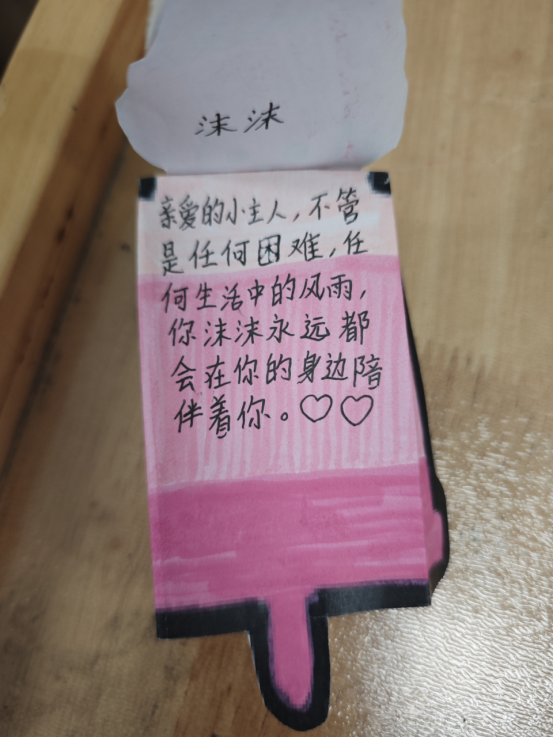 沫沫
亲爱的小主人，不管
是任何困难，任
何生活中的风雨，
你沫沫永远都
会在你的身边陪
伴着你。♡♡